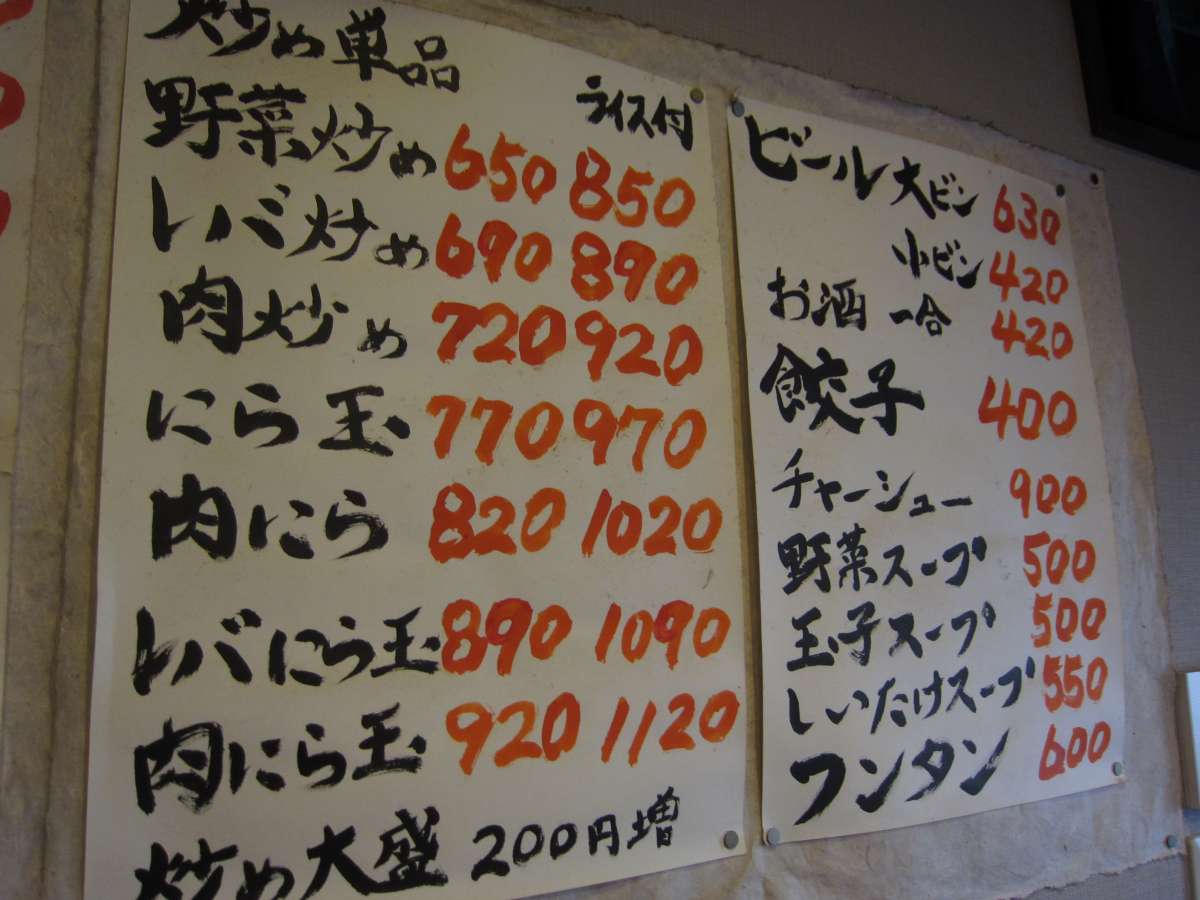 炒め単品
ライス付
野菜炒め 650 850
レバ炒め 690 890
肉炒め 720 920
にら玉 770 970
肉にら 820 1020
レバにら玉 890 1090
肉にら玉 920 1120
炒め大盛 200円増
ビール 大ビン 630
小ビン 420
お酒 一合 420
餃子 400
チャーシュー 900
野菜スープ 500
玉子スープ 500
しいたけスープ 550
フンタン 600